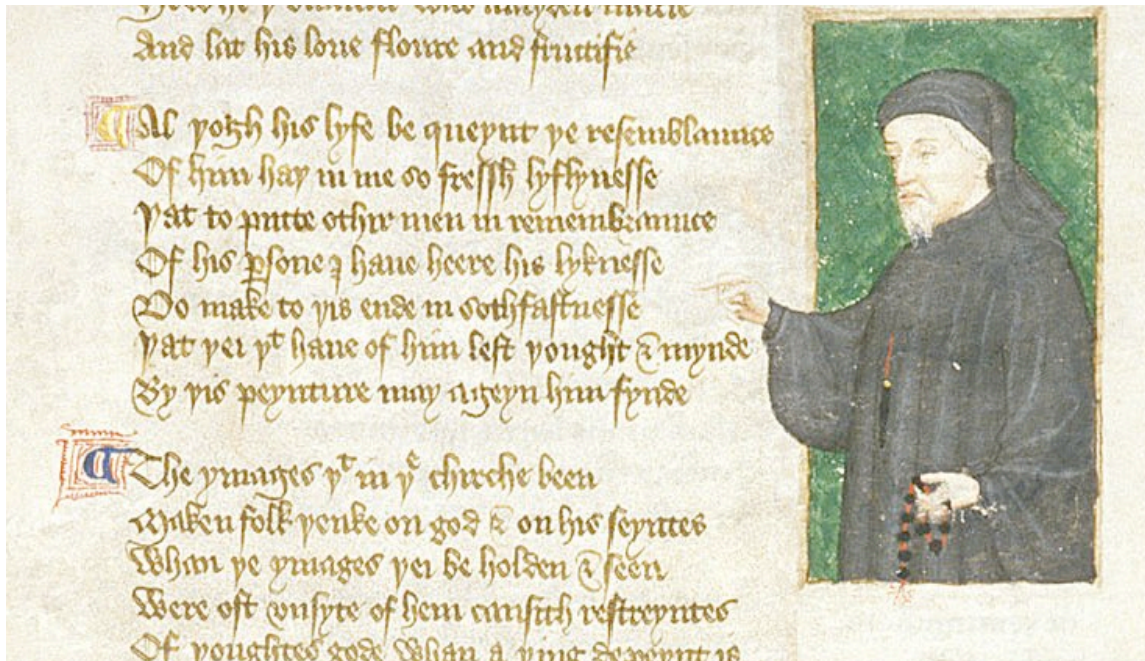 How he þi seruaunt was mayden marie
And lat his loue floure and fructifie
Al þogh his lyfe be queynt þe resemblaunce
Of him haþ in me so fressh lyflynesse
Þat to putte othir men in remembraunce
Of his ꝑsone I haue heere his lyknesse
Do make to þis ende in sothfastnesse
Þat þei þᵗ haue of him left þought & mynde
By þis peynture may ageyn him fynde
The ymages þᵗ in þᵉ chirche been
Maken folk þenke on god & on his seyntes
Whan þe ymages þei be holden & seen
Were oft vnsyte of hem causith restreyntes
Of þoughtes gode whan a þing depeynt is